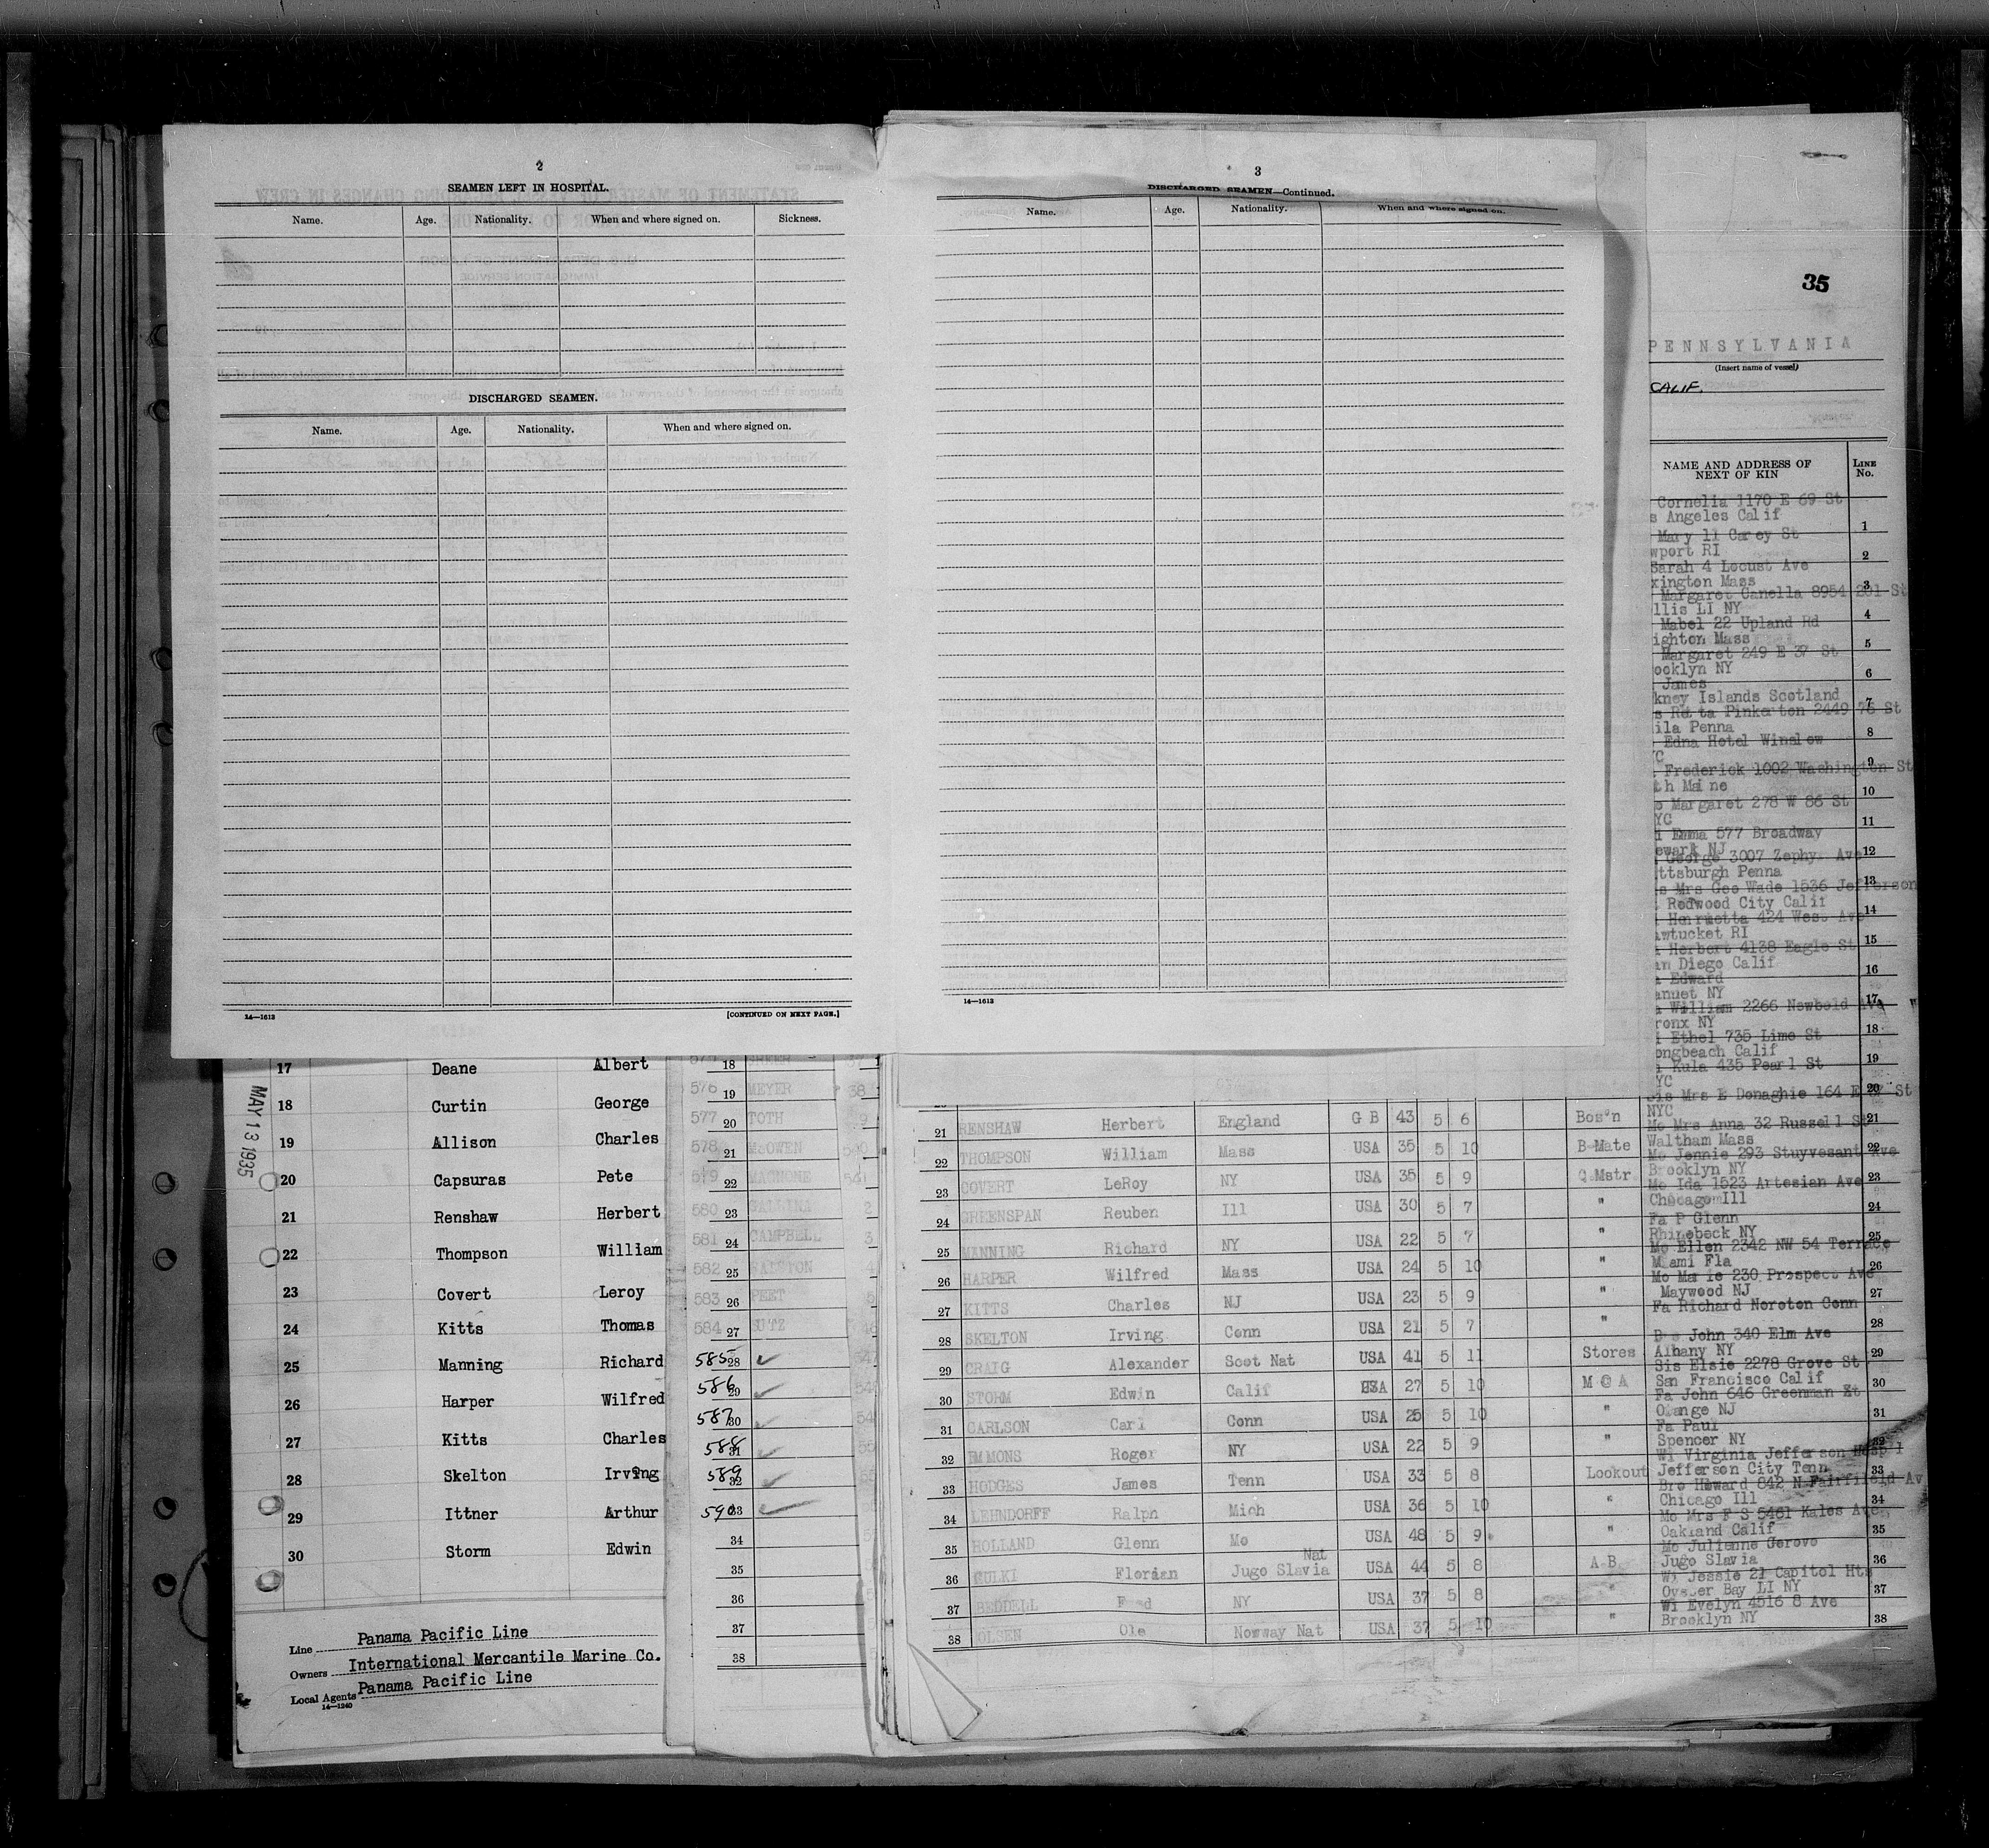 2
SEAMEN LEFT IN HOSPITAL.
Name. Age. Nationality. When and where signed on. Sickness.
DISCHARGED SEAMEN.
Name. Age. Nationality. When and where signed on.
14—1612 [CONTINUED ON NEXT PAGE.]
3
DISCHARGED SEAMEN—Continued.
Name. Age. Nationality. When and where signed on.
14—1612
35
PENNSYLVANIA
(Insert name of vessel)
CALIF.
NAME AND ADDRESS OF NEXT OF KIN
LINE No.
Cornelia 1170 E 69 St
s Angeles Calif 1
Mary 11 Carey St
wport RI 2
Sarah 4 Locust Ave
xington Mass 3
Margaret Canella 8954 201 St
llis LI NY 4
Mabel 22 Upland Rd
ighton Mass 5
Margaret 249 E 37 St
ooklyn NY 6
James
kney Islands Scotland 7
s Reta Pinkerton 2449 76 St
ila Penna 8
Edna Hotel Winslow
YC 9
Frederick 1002 Washington St
th Maine 10
Margaret 278 W 86 St
YC 11
i Emma 577 Broadway
ewark NJ 12
George 3007 Zephyr Ave
ttsburgh Penna 13
s Mrs Geo Wade 1536 Jefferson
Redwood City Calif 14
Henrietta 424 West Ave
awtucket RI 15
Herbert 4138 Eagle St
an Diego Calif 16
Edward
anuet NY 17
William 2266 Newbold Ave
ronx NY 18
i Ethel 735 Lime St
ongbeach Calif 19
Kula 435 Pearl St
YC 20
Sis Mrs E Donaghie 164 E St
MAY 13 1935
17 Deane Albert
18 Curtin George
19 Allison Charles
20 Capsuras Pete
21 Renshaw Herbert
22 Thompson William
23 Covert Leroy
24 Kitts Thomas
25 Manning Richard
26 Harper Wilfred
27 Kitts Charles
28 Skelton Irving
29 Ittner Arthur
30 Storm Edwin
Line Panama Pacific Line
Owners International Mercantile Marine Co.
Local Agents Panama Pacific Line
14—1240
18 GREER
576 19 MEYER 38
577 20 TOTH
578 21 McOWEN 540
579 22 MAGNONE 541
580 23 GALLINA 2
581 24 CAMPBELL 3
582 25
583 26 PEET
584 27
585 28
586 29
587 30
588 31
589 32
590 33
34
35
36
37
38
21 RENSHAW Herbert England G B 43 5 6 Bos'n NYC
Mo Mrs Anna 32 Russell St 21
22 THOMPSON William Mass USA 35 5 10 B Mate Waltham Mass
Mo Jennie 293 Stuyvesant Ave 22
23 COVERT LeRoy NY USA 35 5 9 Q Mstr Brooklyn NY
Mo Ida 1523 Artesian Ave 23
24 GREENSPAN Reuben Ill USA 30 5 7 " Chicago Ill
Fa P Glenn 24
25 MANNING Richard NY USA 22 5 7 " Rhinebeck NY
Mo Ellen 2342 NW 54 Terrace 25
26 HARPER Wilfred Mass USA 24 5 10 " Miami Fla
Mo Marie 230 Prospect Ave 26
27 KITTS Charles NJ USA 23 5 9 " Maywood NJ
Fa Richard Noroton Conn 27
28 SKELTON Irving Conn USA 21 5 7 "
Bro John 340 Elm Ave 28
29 CRAIG Alexander Scot Nat USA 41 5 11 Stores Albany NY
Sis Elsie 2278 Grove St 29
30 STORM Edwin Calif USA 27 5 10 M @ A San Francisco Calif
Fa John 646 Greenman St 30
31 CARLSON Carl Conn USA 25 5 10 " Orange NJ
Fa Paul 31
32 EMMONS Roger NY USA 22 5 9 " Spencer NY
Wi Virginia Jefferson Hosp'l 32
33 HODGES James Tenn USA 33 5 8 Lookout Jefferson City Tenn
Bro Howard 842 N Fairfileld Av 33
34 LEHNDORFF Ralph Mich USA 36 5 10 " Chicago Ill
Mo Mrs F S 5461 Kales Ave 34
35 HOLLAND Glenn Mo USA 48 5 9 " Oakland Calif
Mo Julienne Gerovo 35
36 GULKI Florian Jugo Slavia Nat USA 44 5 8 A B Jugo Slavia
Wi Jessie 21 Capitol Hts 36
37 BEDDELL Fred NY USA 37 5 8 " Oyster Bay LI NY
Wi Evelyn 4516 8 Ave 37
38 OLSEN Ole Norway Nat USA 37 5 10 " Brooklyn NY 38